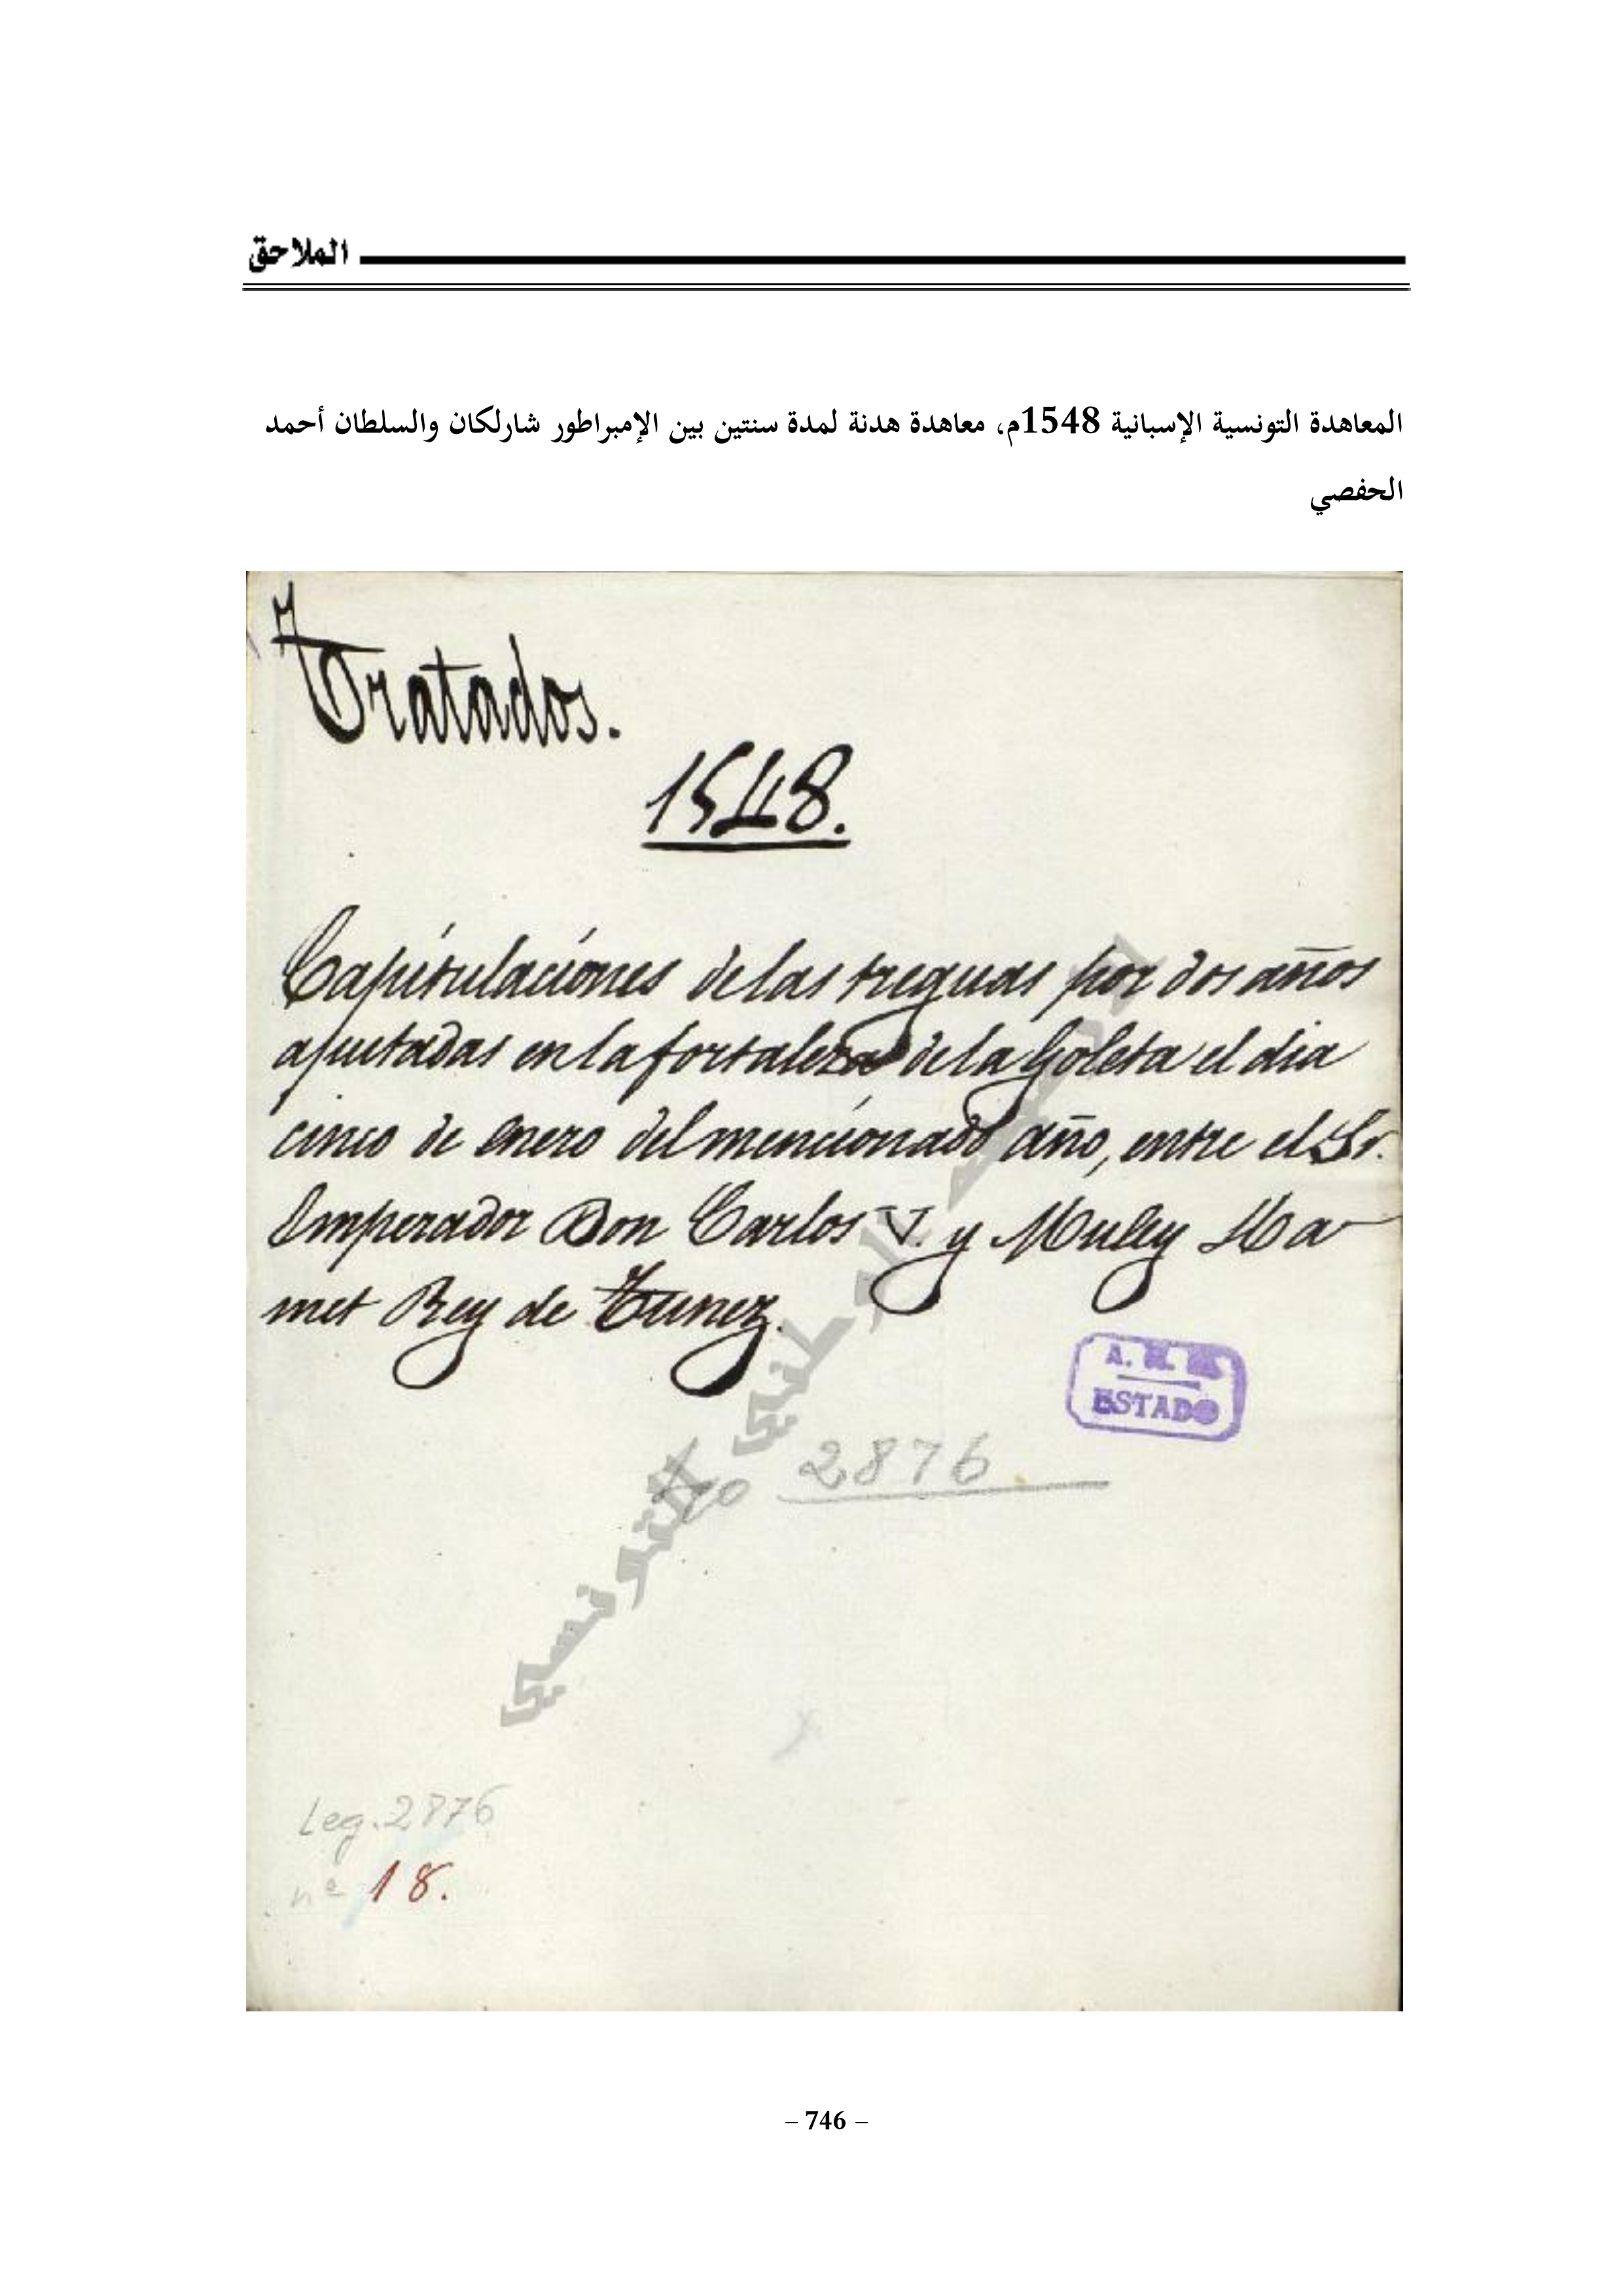 الملاحق
المعاهدة التونسية الإسبانية 1548م، معاهدة هدنة لمدة سنتين بين الإمبراطور شارلكان والسلطان أحمد
الحفصي
Tratados.
1548.
Capitulaciones de las treguas por dos años
ajustadas en la fortaleza de la Goleta el dia
cinco de Enero del mencionado año, entre el Sr.
Emperador Don Carlos V. y Muley Ha-
met Rey de Tunez.
A. H. N.
ESTADO
2876
التونسي
Leg. 2876
nº 18.
– 746 –